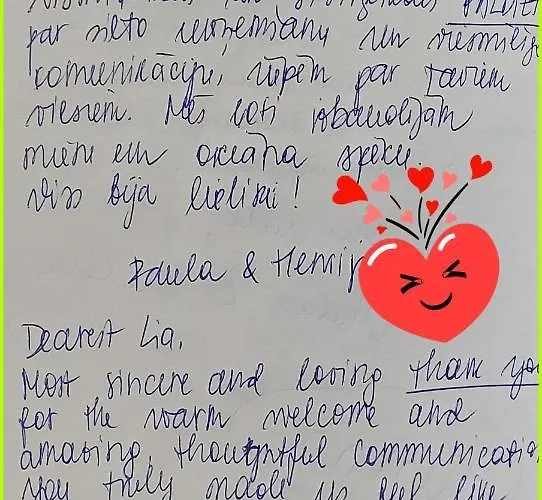 par silto uzņemšanu un viesmīlīgo
komunikāciju, rūpēm par Taviem
viesiem. Mēs ļoti izbaudījām
mieru un okeāna spēku.
Viss bija lieliski!
Paula &
Dearest Lia,
Most sincere and loving thank you
for the warm welcome and
amazing, thoughtful communication,
you truly made us feel like